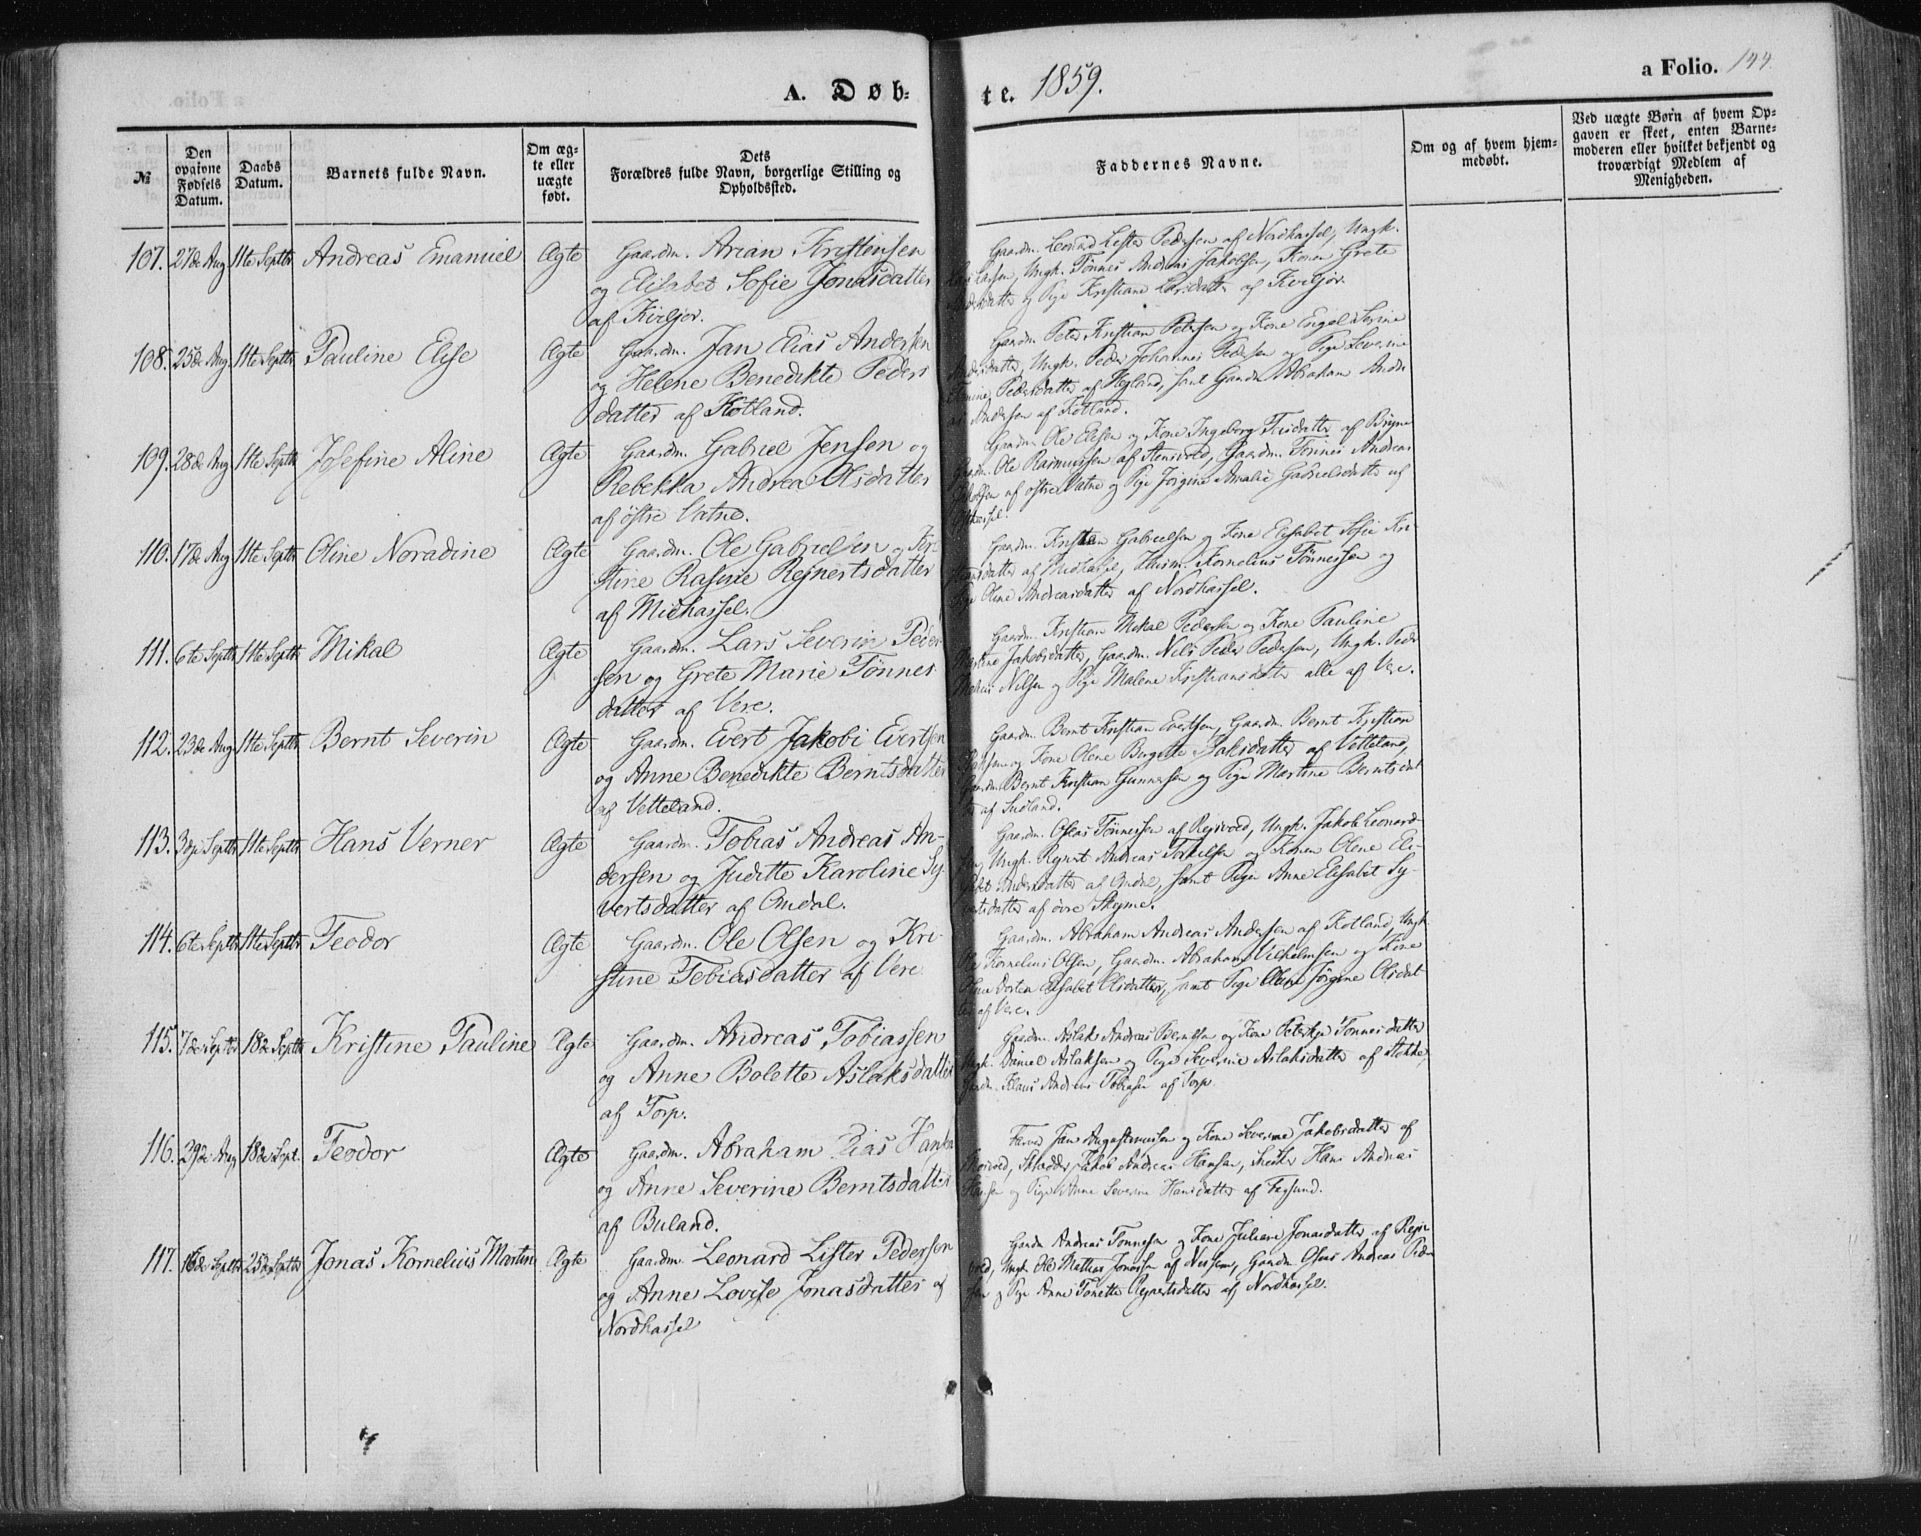 A. Døb-
te. 1859.
a Folio. 144.
№
Den opgivne Fødsels Datum.
Daabs Datum.
Barnets fulde Navn.
Om æg-te eller uægte født.
Dets Forældres fulde Navn, borgerlige Stilling og Opholdssted.
Faddernes Navne.
Om og af hvem hjem-medøbt.
Ved uægte Børn af hvem Op-gaven er skeet, enten Barne-moderen eller hvilket bekjendt og troværdigt Medlem af Menigheden.
107. 27de Aug 11te Septbr Andreas Emanuel Ægte Gaardm. Arian Kristensen
og Elisabet Sofie Jonasdatter
af Kviljor.
Gaardm. Leonard Lister Pedersen af Nordhassel, Ungk.
Larsen, Ungk. Tønnes Andreas Jakobsen, Konen Grete
datter og Pige Kristiane Larsdatter af Kviljor.
108. 25de Aug. 11te Septbr Pauline Elise Ægte Gaardm. Jan Elias Andersen
og Helene Benedikte Peders
datter af Kotland.
Gaardm Peter Kristian Petersen og Kone Engel Serine
datter, Ungk. Peder Johannes Pedersen og Pige Severine
Pedersdatter af Hejland, samt Gaardm Abraham Andre
as Andersen af Kotland.
109. 28de Aug 11te Septbr Josefine Aline Ægte Gaardm. Gabriel Jensen og
Rebekka Andrea Olsdatter
af østre Vatne.
Gaardm Ole Elisen og Kone Ingeborg datter af Bryne
Gaardm. Ole Rasmussen af Stensvold, Gaardm. Tønnes Andreas
af østre Vatne og Pige Jørgine Amalie Gabrielsdatter af
110. 17de Aug 11te Septbr Oline Noradine Ægte Gaardm. Ole Gabrielsen og Kri-
stine Rasine Rejnertsdatter
af Midhassel.
Gaardm. Kristen Gabrielsen og Kone Elisabet Sofie Kri-
stensdatter af Midhassel, Husm. Kornelius Tønnessen og
Pige Oline Andreasdatter af Nordhassel.
111. 6te Septbr 11te Septbr Mikal Ægte Gaardm. Lars Severin Peder-
sen og Grete Marie Tønnes
datter af Vere.
Gaardm. Kristian Mikal Pedersen og Kone Pauline
Jakobsdatter, Gaardm. Nils Peder Pedersen, Ungk. Peder
Nilsen og Pige Malene Kristiansdatter alle af Vere.
112. 23de Aug 11te Septbr Bernt Severin Ægte Gaardm. Evert Jakobi Evertsen
og Anne Benedikte Berntsdatter
af Vetteland.
Gaardm. Bernt Kristian Evertsen, Gaardm. Bernt Kristian
og Kone Olene Birgitte datter af Vetteland,
Gaardm. Bernt Kristian Gunnersen og Pige Martine Berntsdat
ter af Sudland.
113. 3die Septbr 11te Septbr Hans Verner Ægte Gaardm. Tobias Andreas An-
dersen og Juditte Karoline Sy-
vertsdatter af Omdal.
Gaardm. Tønnessen af Rejsvold, Ungk. Jakob Leonard-
sen, Ungk. Rejnert Andreas Torkelsen og Konen Olene Eli-
sabet Andersdatter af Omdal, samt Pige Anne Elisabet Sy-
vertsdatter af øvre Skeime.
114. 6te Septbr 11te Septbr Teodor Ægte Gaardm. Ole Olsen og Kri-
stine Tobiasdatter af Vere
Gaardm. Abraham Andreas Andersen af Kotland, Ungk.
Kornelius Olsen, Gaardm. Abraham Vilhelmsen og Kone
Elisabet Olsdatter, samt Pige Oline Jørgine Olsdat
ter af Vere.
115. 7de Septbr 18de Septbr Kristine Pauline Ægte Gaardm. Andreas Tobiassen
og Anne Bolette Aslaksdatter
af Torp.
Gaardm. Aslak Andreas Berntsen og Kone Tønnesdatter
Ungk. Daniel Aslaksen og Pige Severine Aslaksdatter af Stokke,
Gaardm. Klaus Andreas Tobiassen af Torp.
116. 29de Aug 18de Sept. Teodor Ægte Gaardm. Abraham Elias Hansen
og Anne Severine Berntsdatter
af Buland.
Farver Jan Augustinussen og Kone Severine Jakobsdatter af
Skrædder Jakob Andreas Hansen, Snedker Hans Andreas
Hansen og Pige Anne Severine Hansdatter af Farsund.
117. 16de Septbr 25de Septbr Jonas Kornelius Martin Ægte Gaardm. Leonard Lister Pedersen
og Anne Lovise Jonasdatter af
Nordhassel
Gaardm Andreas Tønnesen og Kone Juliane Jonasdatter af Rejs-
vold, Ungk. Ole Mathias Jonassen af Nessem, Gaardm Andreas Peder
sen og Pige Anne Tonette Rejnertsdatter af Nordhassel.